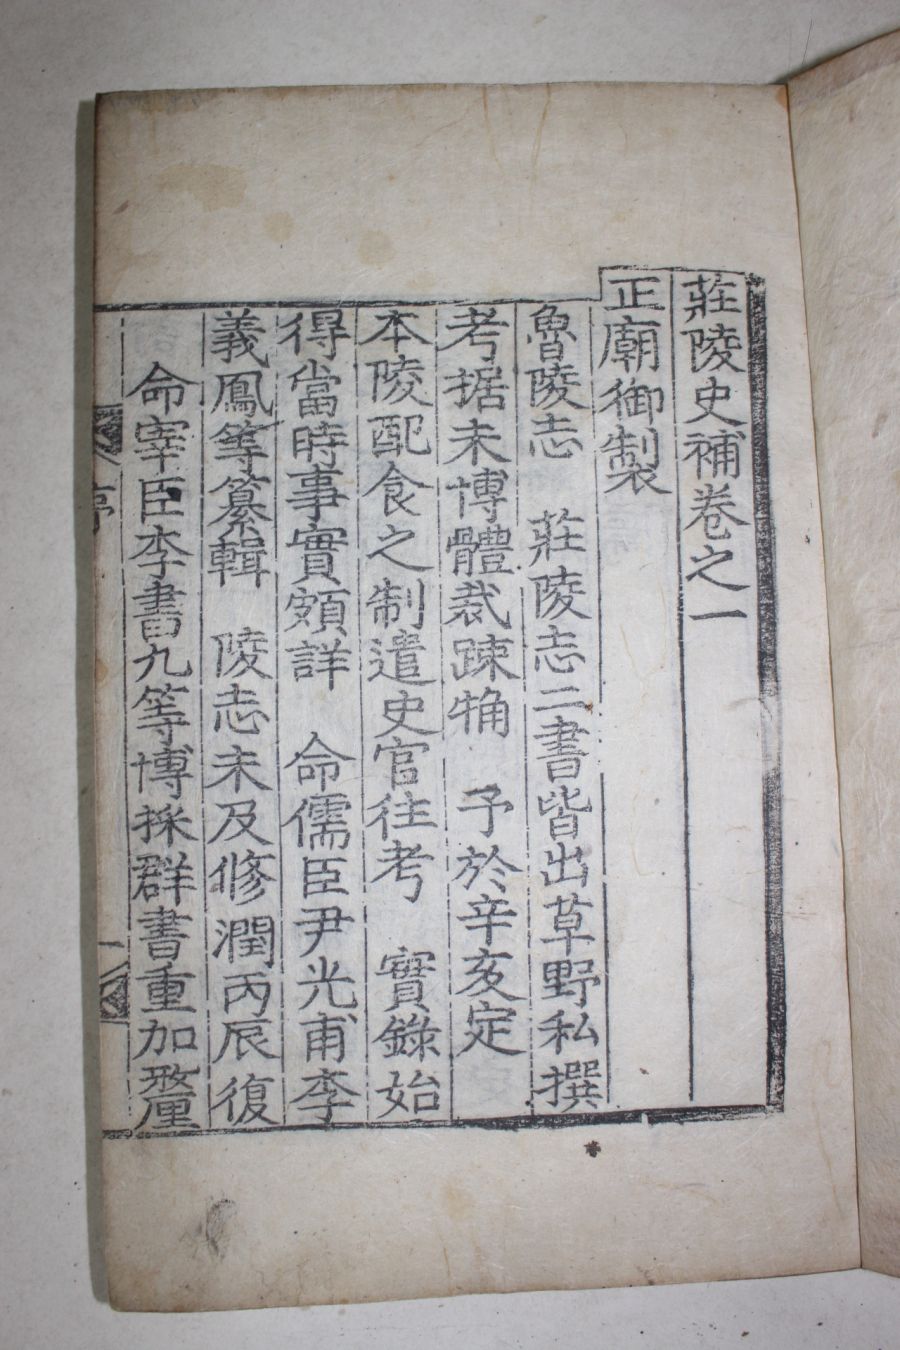 莊陵史補卷之一
正廟御製
魯陵志 莊陵志二書皆出草野私撰
考据未博體裁踈觕 予於辛亥定
本陵配食之制遣史官往考 實錄始
得當時事實頗詳 命儒臣尹光甫李
義鳳等纂輯 陵志未及修潤丙辰復
命宰臣李書九等博採群書重加釐
序
一